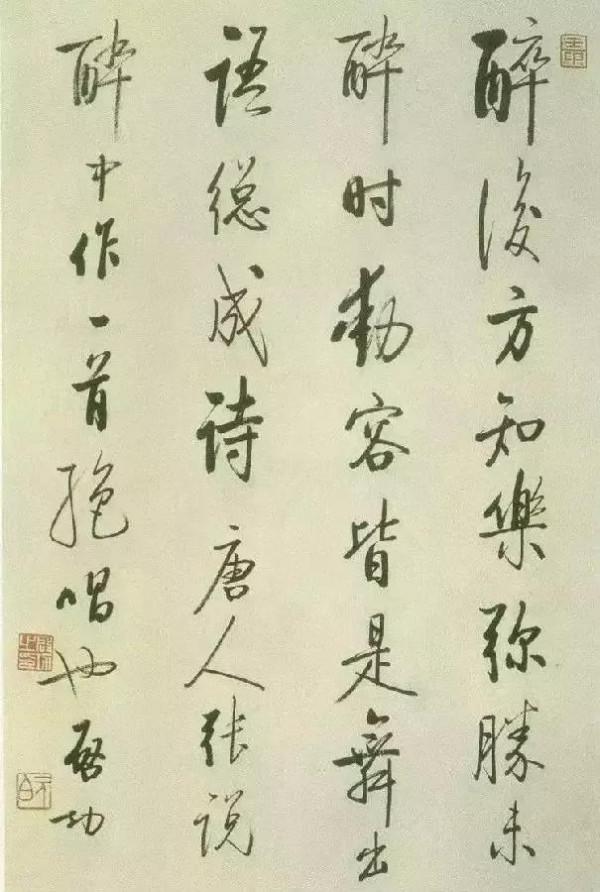 醉後方知樂弥勝未
醉时動容皆是舞出
語總成诗唐人张说
醉中作一首绝唱也啟功